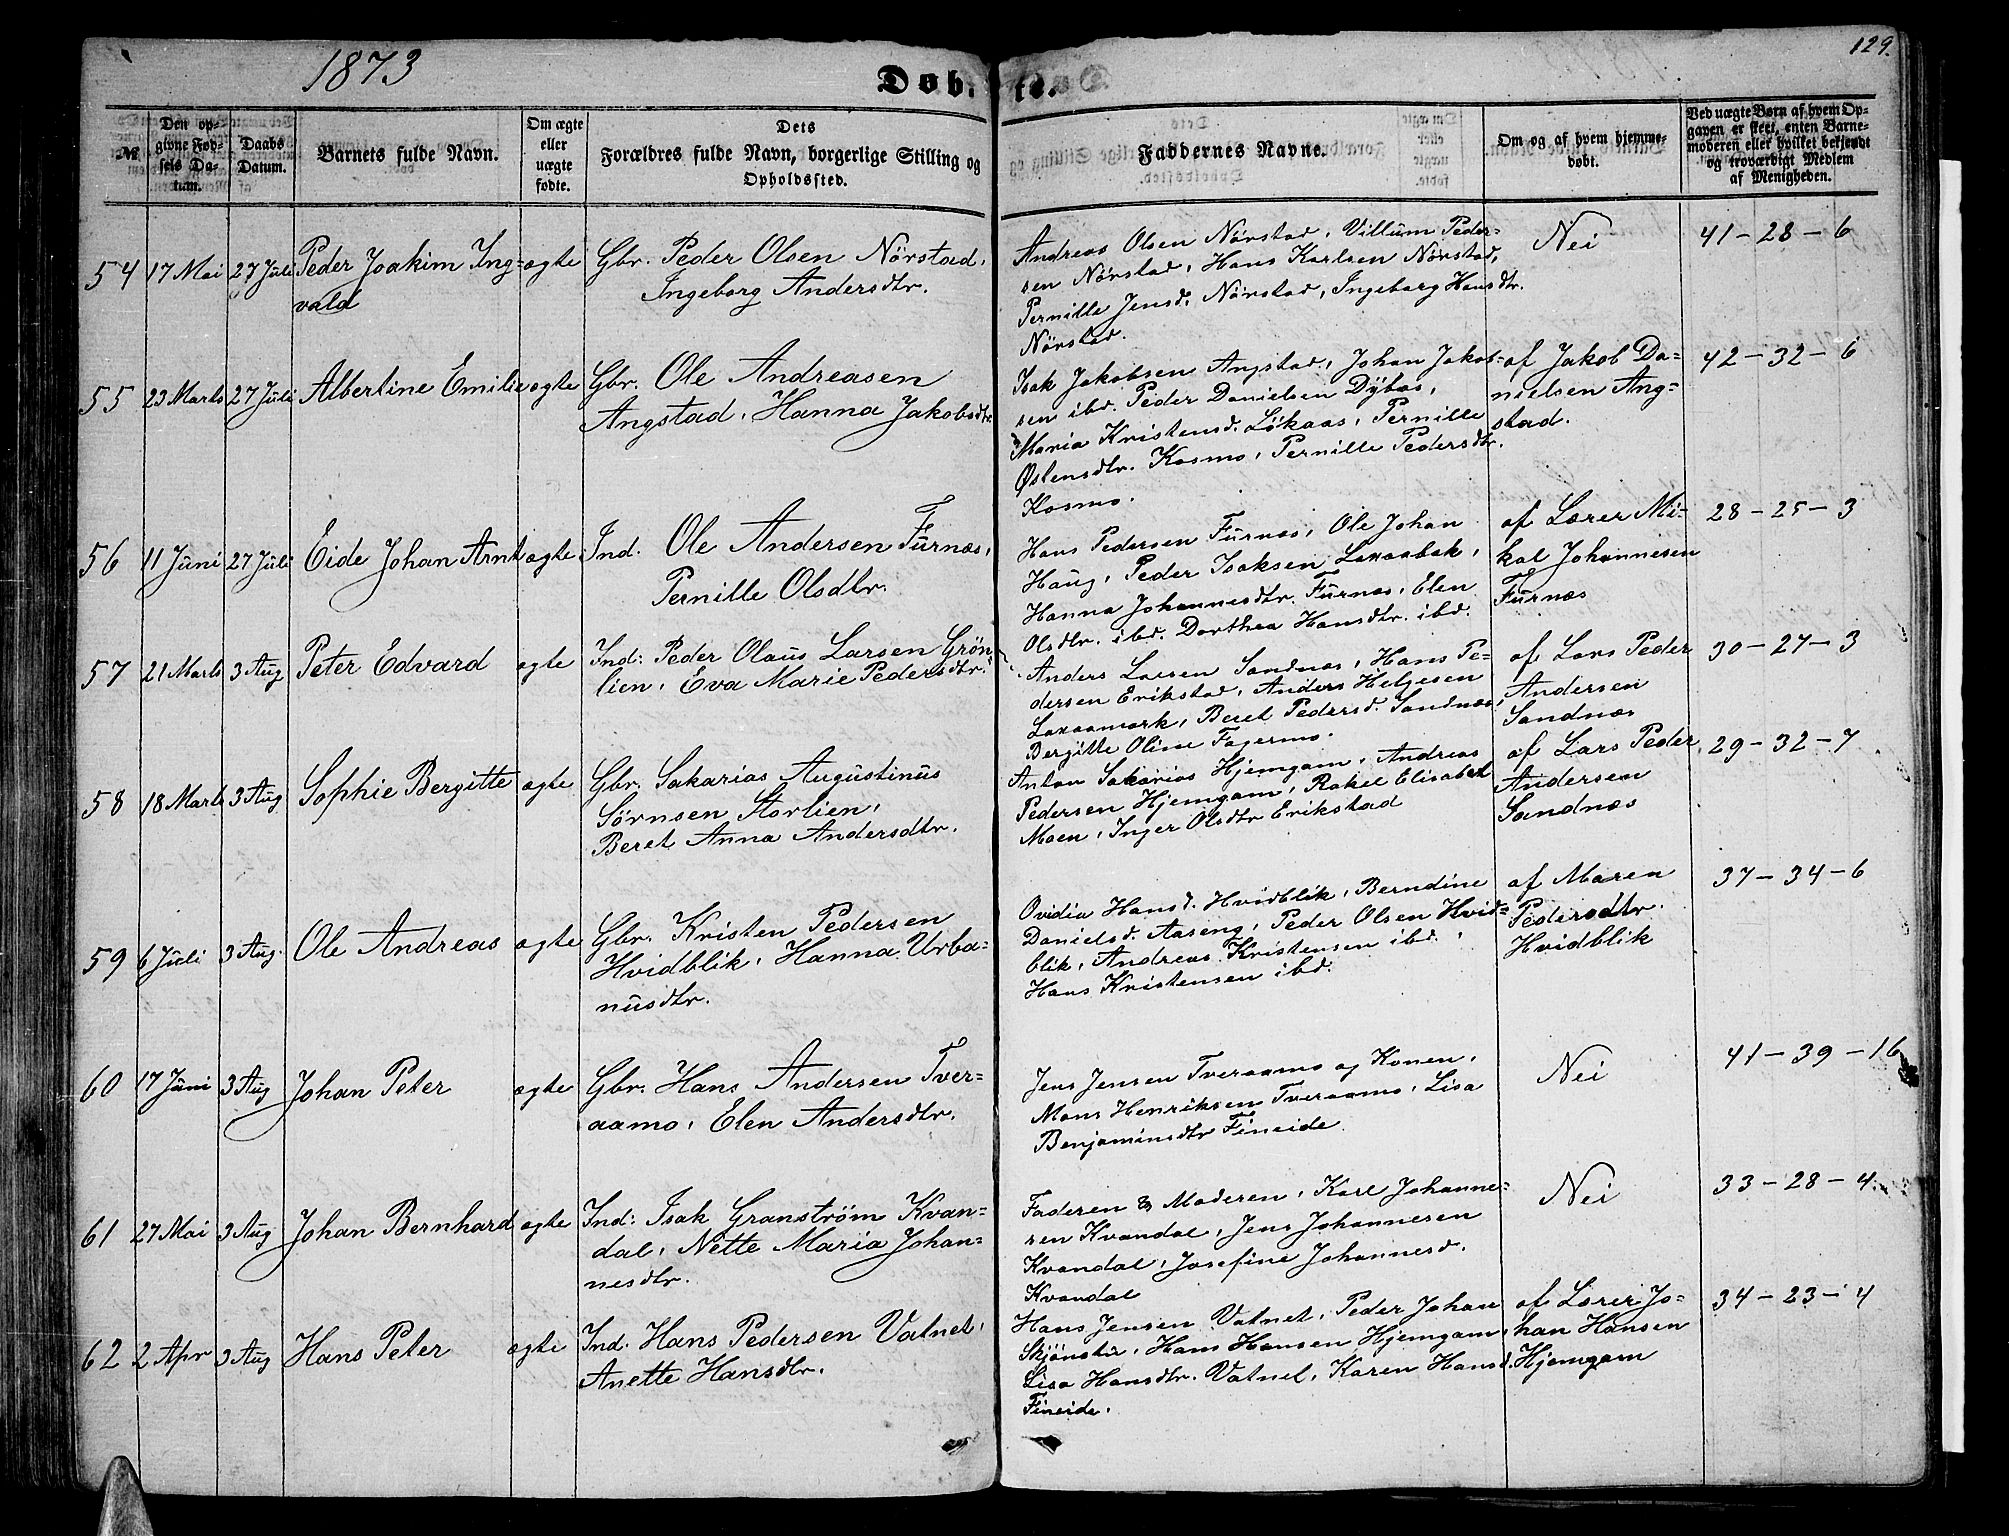 1873
Døbte.
129.
№
Den opgivne Fødsels Datum.
Daabs Datum.
Barnets fulde Navn.
Om ægte eller uægte fødte.
Dets Forældres fulde Navn, borgerlige Stilling og Opholdssted.
Faddernes Navne.
Om og af hvem hjemmedøbt.
Ved uægte Børn af hvem Opgaven er skeet, enten Barnemoderen eller hvilket bekjendt og troværdigt Medlem af Menigheden.
54 17 Mai 27 Juli Peder Joakim Ing=
vald
ægte
Gbr. Peder Olsen Nörstad,
Ingeborg Andersdtr.
Andreas Olsen Nörstad, Villum Peder-
sen Nörstad, Hans Karlsen Nörstad,
Pernille Jensd. Nörstad, Ingeborg Hansdtr.
Nörstad.
Nei
41-28-6
55 23 Marts 27 Juli Albertine Emilie ægte
Gbr. Ole Andreasen
Angstad, Hanna Jakobsdtr.
Isak Jakobsen Angstad, Johan Jakob=
sen ibd. Peder Danielsen Dybas,
Maria Kristensd. Lökaas, Pernille
Østensdtr. Kosmo, Pernille Pedersdtr.
Kosmo.
af Jakob Da=
nielsen Ang=
stad.
42-32-6
56 11 Juni 27 Juli Eide Johan Arnt ægte
Ind. Ole Andersen Furnæs,
Pernille Olsdtr.
Hans Pedersen Furnæs, Ole Johan
Haug, Peder Isaksen Laxaabak,
Hanna Johannesdtr. Furnæs, Elen
Olsdtr. ibd. Dorthea Hansdtr. ibd.
af Lærer Mi=
kal Johannesen
Furnæs
28-25-3
57 21 Marts 3 Aug Peter Edvard ægte
Ind: Peder Olaus Larsen Grön
lien, Eva Marie Pedersdtr.
Anders Larsen Sandnæs, Hans Pe=
dersen Erikstad, Anders Helgesen
Laxaamark, Beret Pedersd. Sandnæs,
Bergitte Oline Fagermo.
af Lars Peder
Andersen
Sandnæs
30-27-3
58 18 Marts 3 Aug Sophie Bergitte ægte
Gbr. Sakarias Augustinus
Sörnsen Storlien,
Beret Anna Andersdtr.
Anton Sakarias Hjemgam, Andreas
Pedersen Hjemgam, Rakel Elisabet
Moen, Inger Olsdtr Erikstad
af Lars Peder
Andersen
Sandnæs
29-32-7
59 6 Juli 3 Aug. Ole Andreas ægte
Gbr. Kristen Pedersen
Hvidblik, Hanna Urba=
nusdtr.
Ovidia Hansd. Hvidblik, Berndine
Danielsd. Aaseng, Peder Olsen Hvid=
blik, Andreas Kristensen ibd.,
Hans Kristensen ibd.
af Maren
Pedersdtr.
Hvidblik
37-34-6
60 17 Juni 3 Aug Johan Peter ægte
Gbr. Hans Andersen Tver=
aamo, Elen Andersdtr.
Jens Jensen Tveraamo og Konen,
Mons Henriksen Tveraamo, Lisa
Benjaminsdtr Fineide
Nei
41-39-16
61 27 Mai 3 Aug Johan Bernhard ægte
Ind: Isak Granström Kvan=
dal, Nette Maria Johan=
nesdtr.
Faderen & Moderen, Karl Johanne=
sen Kvandal, Jens Johannesen
Kvandal, Josefine Johannesd.
Kvandal
Nei
33-28-4
62 2 Apr 3 Aug Hans Peter ægte
Ind. Hans Pedersen Vatnet,
Anette Hansdtr.
Hans Jensen Vatnet, Peder Johan
Skjönsta, Hans Hansen Hjemgam,
Lisa Hansdtr. Vatnet, Karen Hansd.
Fineide.
af Lærer Jo=
han Hansen
Hjemgam
34-23-4